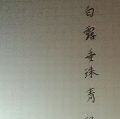 白露垂珠青